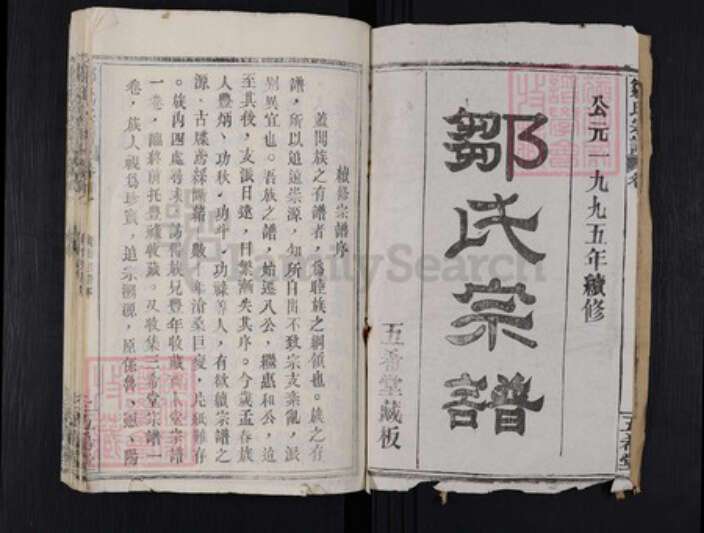 公元一九九五年續修
鄒氏宗譜
五番堂藏板
續修宗譜序
蓋聞族之有譜者，為睦族之綱領也。族之有
譜，所以追遠崇源，知所自出不致宗支紊亂，派
別異宜也。吾族之譜，始遷八公，繼惠和公，迨
至其後，支派日遠，日繁漸失其序。今歲孟春族
人豐炳、功秋、功斗、功祿等人，有欲續宗譜之
源，古牒
數十年滄桑巨變，片紙難存
。族內四處尋未
族兄豐年收藏
堂宗譜
一卷，臨終囑托豐
收藏。又收集三番堂宗譜一
卷，族人視為珍寶，追宗溯源，原係魯、恩、陽
FamilySearch